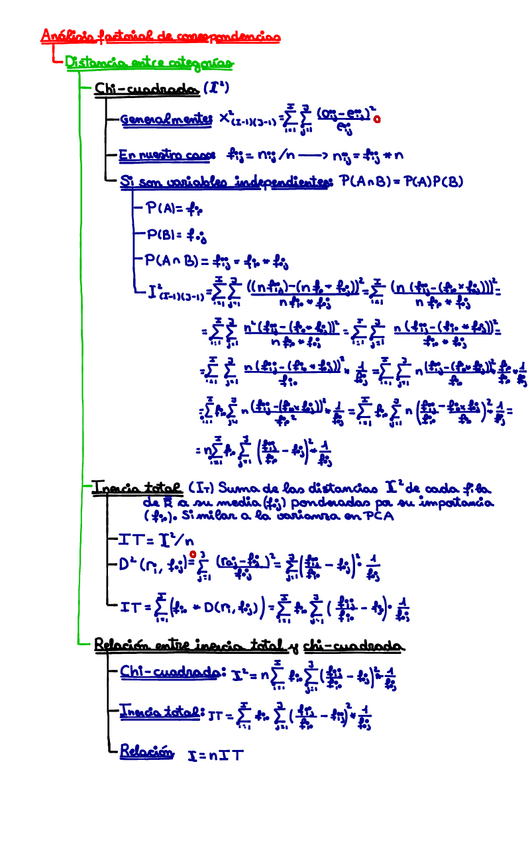 Análisis factorial de correspondencias
Distancia entre categorías
Chi-cuadrada (I²)
Generalmente: X²(I-1)(J-1) = Σ(i=1, I) Σ(j=1, J) (oij - eij)² / eij
En nuestro caso: fij = nij/n → nij = fij * n
Si son variables independientes: P(A∩B) = P(A)P(B)
P(A) = fi•
P(B) = f•j
P(A∩B) = fij = fi• * f•j
I²(I-1)(J-1) = Σ(i=1, I) Σ(j=1, J) ((n fij) - (n fi• * f•j))² / n fi• * f•j = Σ(i=1, I) (n (fij - (fi• * f•j)))² / n fi• * f•j =
= Σ(i=1, I) Σ(j=1, J) n² (fij - (fi• * f•j))² / n fi• * f•j = Σ(i=1, I) Σ(j=1, J) n (fij - (fi• * f•j))² / fi• * f•j =
= Σ(i=1, I) Σ(j=1, J) n (fij - (fi• * f•j))² / fi• * 1/f•j = Σ(i=1, I) Σ(j=1, J) n (fij - (fi• * f•j))² / fi• * fi•/fi• * 1/f•j
= Σ(i=1, I) fi• Σ(j=1, J) n (fij - (fi• * f•j))² / fi•² * 1/f•j = Σ(i=1, I) fi• Σ(j=1, J) n (fij/fi• - fi• * f•j/fi•)² * 1/f•j =
= n Σ(i=1, I) fi• Σ(j=1, J) (fij/fi• - f•j)² * 1/f•j
Inercia total (IT) Suma de las distancias I² de cada fila
de R a su media (f•j) ponderadas por su importancia
(fi•). Similar a la varianza en PCA
IT = I²/n
D²(ri, f•j) = Σ(j=1, J) (rij - f•j)² / f•j = Σ(j=1, J) (fij/fi• - f•j)² * 1/f•j
IT = Σ(i=1, I) (fi• * D(ri, f•j)) = Σ(i=1, I) fi• Σ(j=1, J) (fij/fi• - f•j)² * 1/f•j
Relación entre inercia total y chi-cuadrada
Chi-cuadrada: I² = n Σ(i=1, I) fi• Σ(j=1, J) (fij/fi• - f•j)² * 1/f•j
Inercia total: IT = Σ(i=1, I) fi• Σ(j=1, J) (fij/fi• - f•j)² * 1/f•j
Relación I = nIT